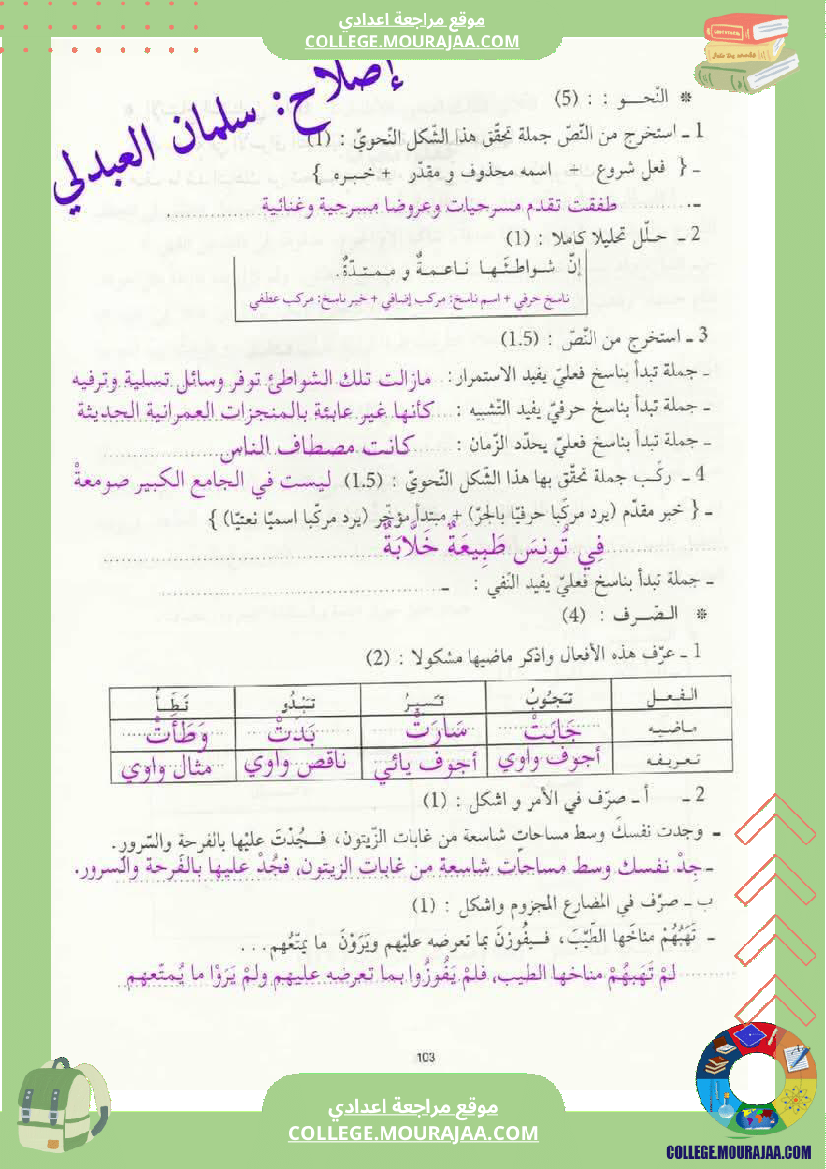 موقع مراجعة اعدادي
COLLEGE.MOURAJAA.COM
إصلاح: سلمان العبدلي
* النّحـــو : : (5)
1 ـ استخرج من النّصّ جملة تحقّق هذا الشّكل النّحويّ : (1)
ـ { فعل شروع + اسمه محذوف و مقدّر + خبره }
ـ. طفقت تقدم مسرحيات وعروضا مسرحية وغنائية
2 ـ حلّل تحليلا كاملا : (1)
إنّ شواطئَـها ناعمةٌ و ممتدّةٌ.
ناسخ حرفي + اسم ناسخ: مركب إضافي + خبر ناسخ: مركب عطفي
3 ـ استخرج من النّصّ : (1.5)
ـ جملة تبدأ بناسخ فعليّ يفيد الاستمرار: مازالت تلك الشواطئ توفر وسائل تسلية وترفيه
ـ جملة تبدأ بناسخ حرفيّ يفيد التّشبيه : كأنها غير عابئة بالمنجزات العمرانية الحديثة
ـ جملة تبدأ بناسخ فعليّ يحدّد الزّمان : كانت مصطاف الناس
4 ـ ركّب جملة تحقّق بها هذا الشّكل النّحويّ : (1.5) ليست في الجامع الكبير صومعةْ
ـ { خبر مقدّم (يرد مركّبا حرفيّا بالجرّ) + مبتدأ مؤخّر (يرد مركّبا اسميّا نعتيّا) }
فِي تُونِسَ طَبِيعَةٌ خَلَّابَةٌ
ـ جملة تبدأ بناسخ فعليّ يفيد النّفي : ـ
* الصّـرف : (4)
1 ـ عرّف هذه الأفعال واذكر ماضيها مشكولا : (2)
الفعل تَجُوبُ تَسيرُ تَبْدُو تَطَأُ
ماضيه جَابَتْ سَارَتْ بَدتْ وَطَأتْ
تعريفه أجوف واوي أجوف يائي ناقص واوي مثال واوي
2 ـ أ ـ صرّف في الأمر و اشكل : (1)
ـ وجدت نفسكَ وسط مساحاتٍ شاسعة من غابات الزّيتون، فجُدْتَ عليْها بالفرحةِ والسّرورِ.
ـ جِدْ نفسك وسط مساحات شاسعة من غابات الزيتون، فجُدْ عليها بالفرحة والسرور.
ب ـ صرّف في المضارع المجزوم واشكل : (1)
ـ تَهَبُهُمْ مناخَها الطّيّبَ، فيفُوزْنَ بما تعرضه عليْهم ويَرَوْنَ ما يمتّعُهم...
لمْ تَهَبهُمْ مناخها الطيب، فلمْ يَفُوزُوا بما تعرضه عليهم ولمْ يَرَوْا ما يُمتّعهم
103
موقع مراجعة اعدادي
COLLEGE.MOURAJAA.COM
COLLEGE.MOURAJAA.COM